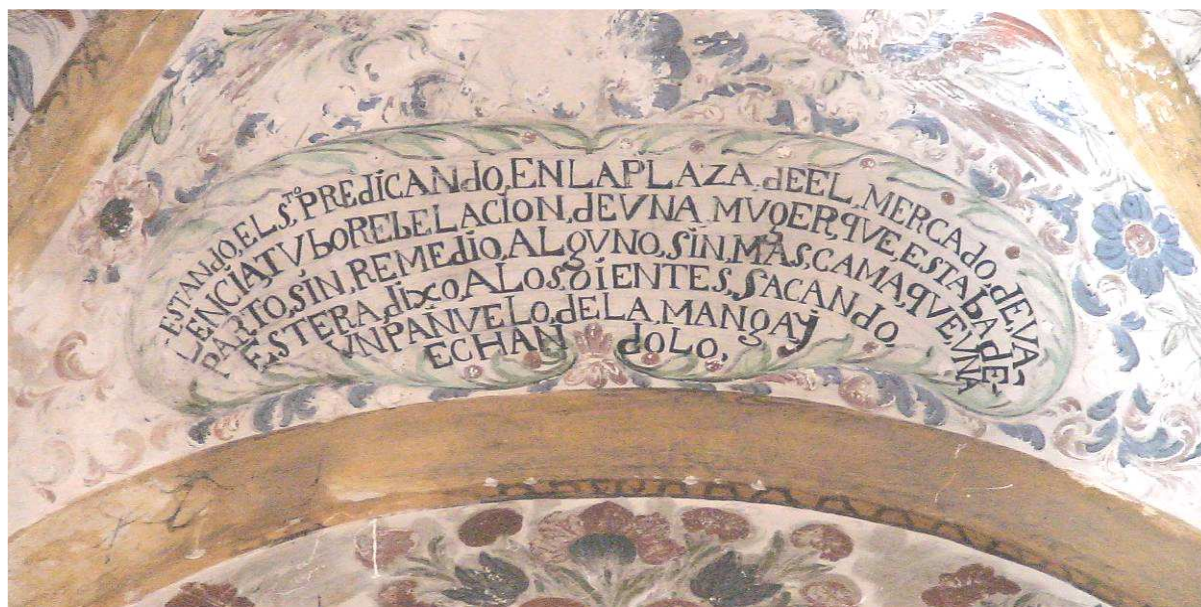 ESTANdO, EL Sto PREdICANdO, EN LA PLAZA, dE EL, MERCAdO, dE VA-
LENCIA, TUbO REbELACION, dE VNA MUgER, qUE, ESTAbA, dE-
PARTO, SIN, REMEdIO, ALgUNO, SIN, MAS, CAMA, qUE VNA
ESTERA, dIxO, A LOS, OIENTES, SACANdO,
VN PANUELO, dE LA MANgA, y
ECHANdOLO,